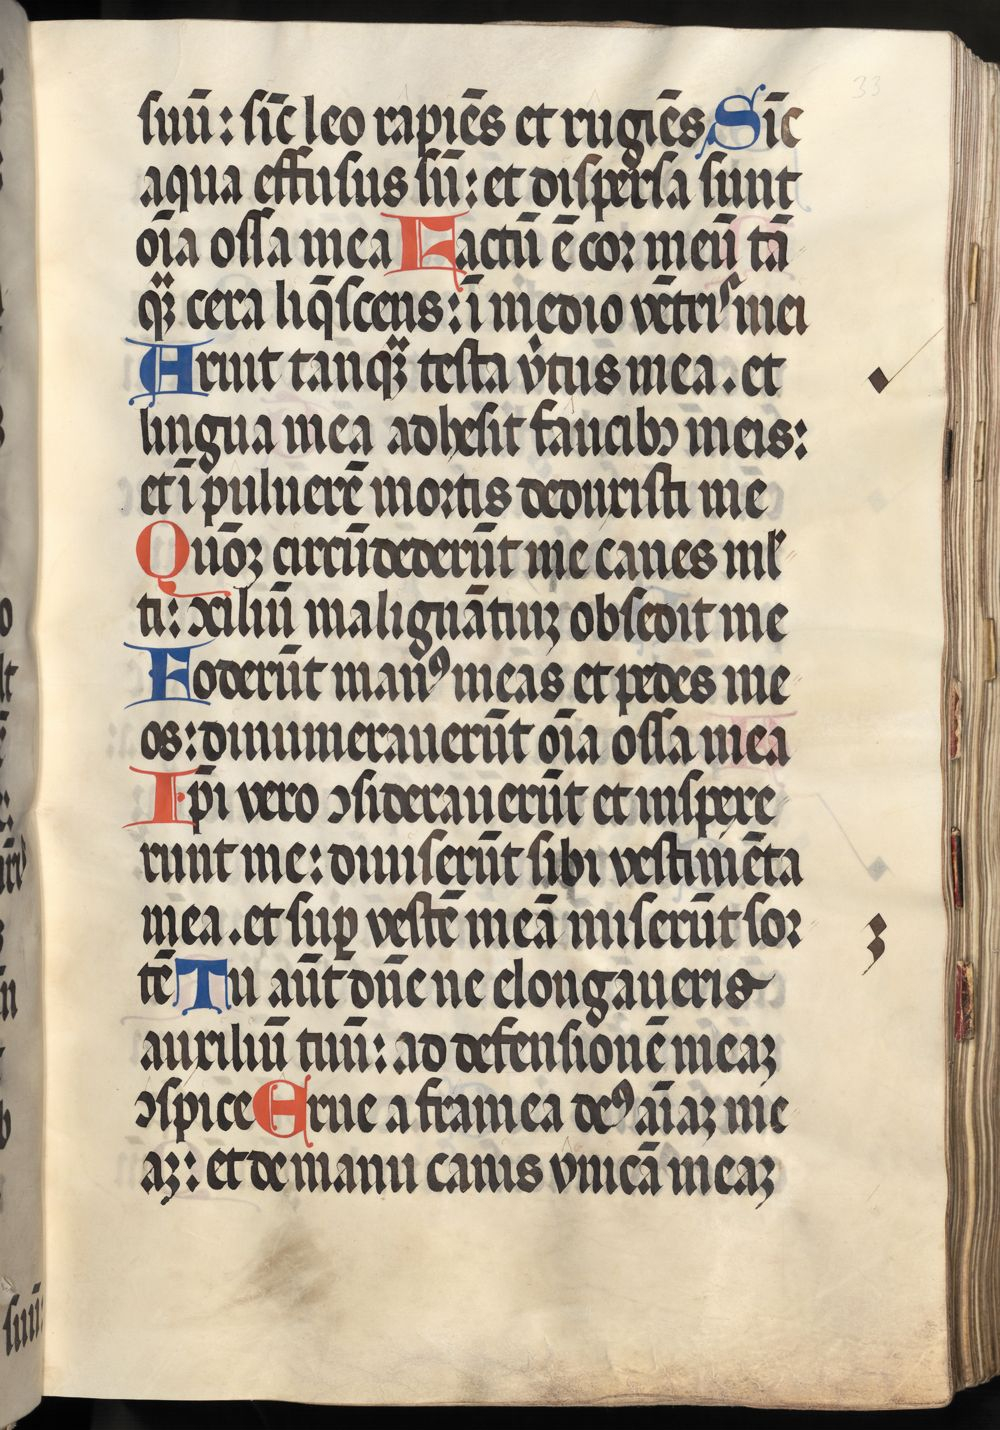 33
suū: sīc leo rapiēs et rugiēs Sīc
aqua effusus sū: et dispersa sunt
oīa ossa mea Factū ē cor meū tā
qꝫ cera liq̄scens: ī medio vētris mei
Aruit tanqꝫ testa v̇tus mea. et
lingua mea adhesit faucibꝫ meis:
et ī puluerē mortis deduxisti me
Quōꝫ circūdederūt me canes ml̄
ti: ↄsiliū malignātiuꝫ obsedit me
Foderūt manꝰ meas et pedes me
os: dinumerauerūt oīa ossa mea
Ip̄i vero ↄsiderauerūt et inspexe
runt me: diuiserūt sibi vestimēta
mea. et suꝑ vestē meā miserūt sor
tē Tu aūt dn̄e ne elongaueris
auxiliū tuū: ad defensionē meaꝫ
ↄspice Erue a framea deꝰ aīaꝫ me
aꝫ: et de manu canis vnicā meaꝫ
suū: